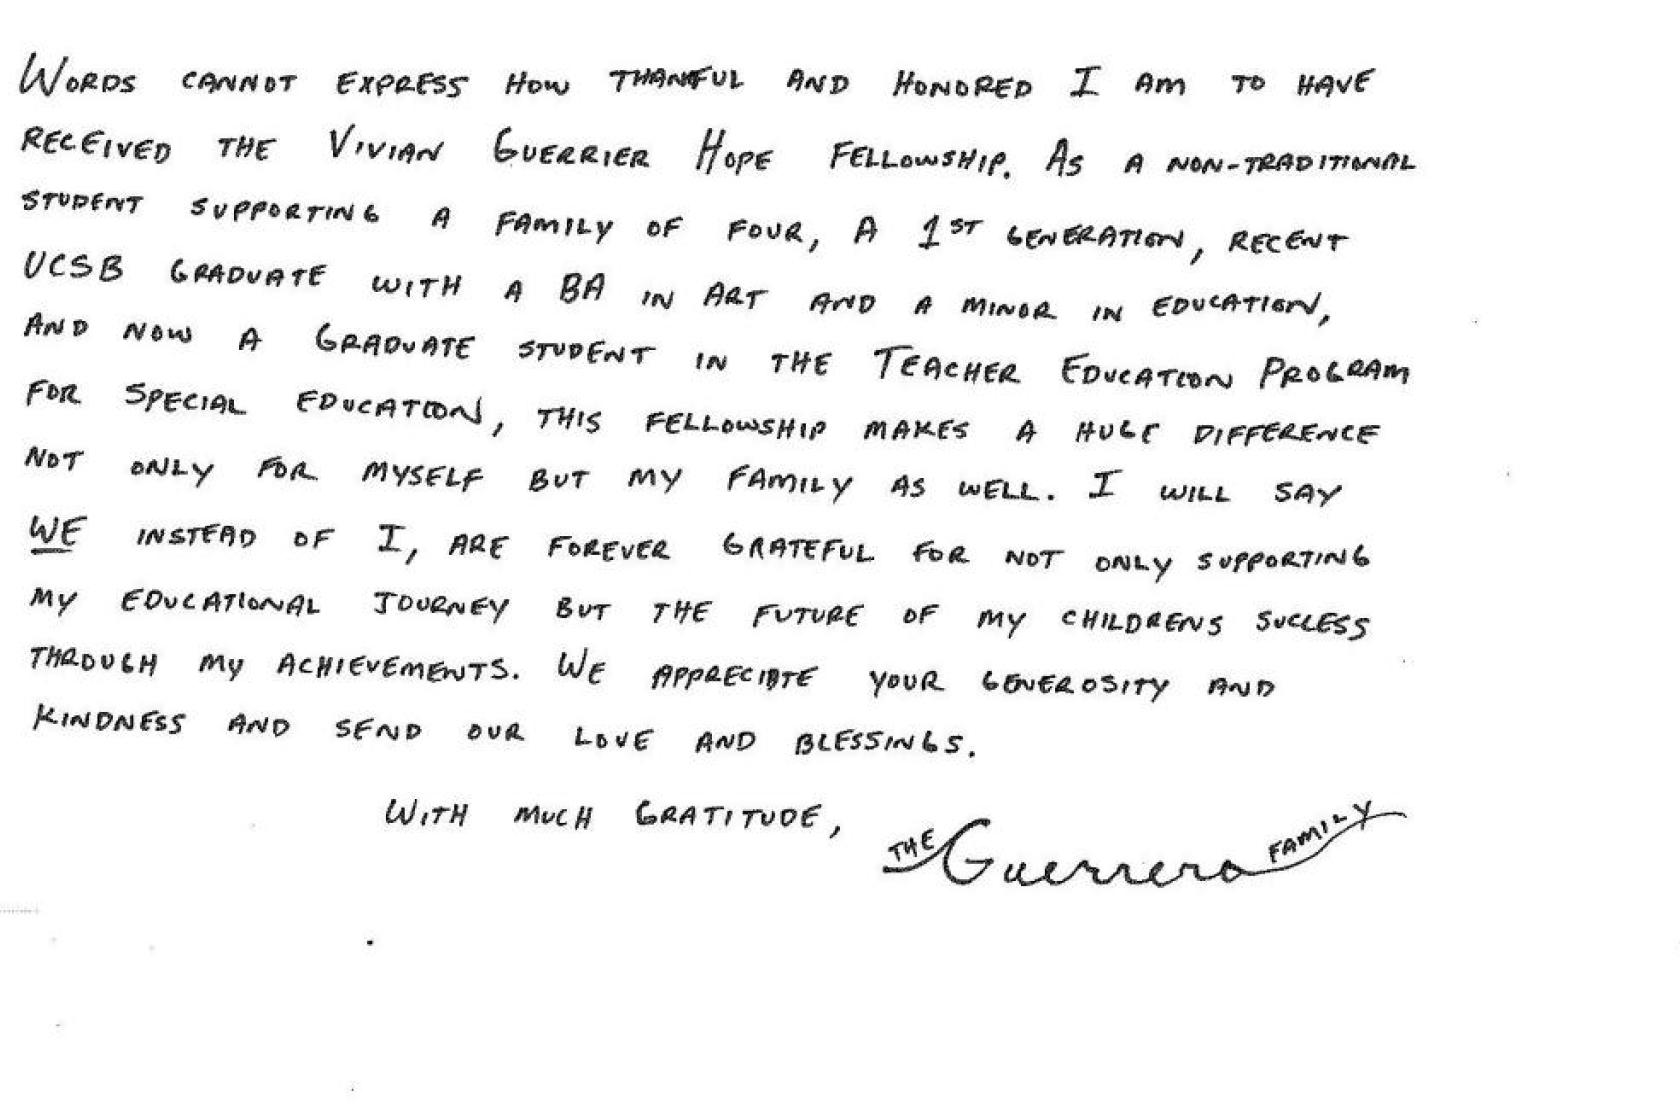 WORDS CANNOT EXPRESS HOW THANKFUL AND HONORED I AM TO HAVE
RECEIVED THE VIVIAN GUERRIER HOPE FELLOWSHIP. AS A NON-TRADITIONAL
STUDENT SUPPORTING A FAMILY OF FOUR, A 1ST GENERATION, RECENT
UCSB GRADUATE WITH A BA IN ART AND A MINOR IN EDUCATION,
AND NOW A GRADUATE STUDENT IN THE TEACHER EDUCATION PROGRAM
FOR SPECIAL EDUCATION, THIS FELLOWSHIP MAKES A HUGE DIFFERENCE
NOT ONLY FOR MYSELF BUT MY FAMILY AS WELL. I WILL SAY
WE INSTEAD OF I, ARE FOREVER GRATEFUL FOR NOT ONLY SUPPORTING
MY EDUCATIONAL JOURNEY BUT THE FUTURE OF MY CHILDRENS SUCCESS
THROUGH MY ACHIEVEMENTS. WE APPRECIATE YOUR GENEROSITY AND
KINDNESS AND SEND OUR LOVE AND BLESSINGS.
WITH MUCH GRATITUDE,
THE Guerrero FAMILY